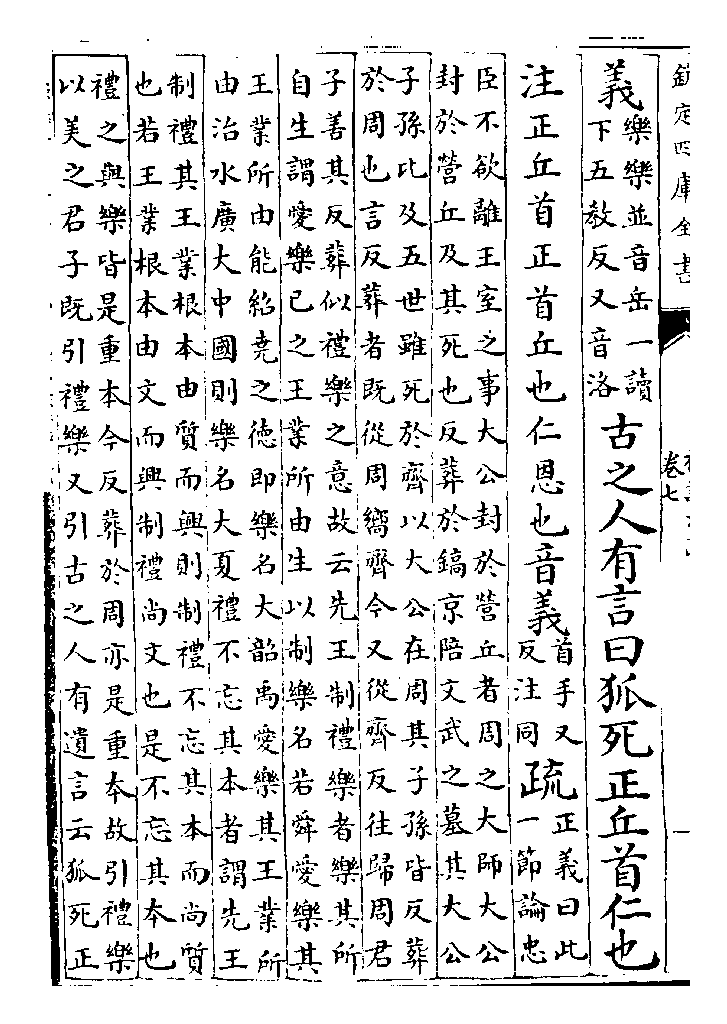 欽定四庫全書
卷七
義樂樂並音岳一讀
下五敎反又音洛
古之人有言曰狐死正丘首仁也
注正丘首正首丘也仁恩也音義首手又
反注同
疏正義曰此
一節論忠
臣不欲離王室之事大公封於營丘者周之大師大公
封於營丘及其死也反葬於鎬京陪文武之墓其大公
子孫比及五世雖死於齊以大公在周其子孫皆反葬
於周也言反葬者既從周嚮齊今又從齊反往歸周君
子善其反葬似禮樂之意故云先王制禮樂者樂其所
自生謂愛樂已之王業所由生以制樂名若舜愛樂其
王業所由能紹堯之徳即樂名大韶禹愛樂其王業所
由治水廣大中國則樂名大夏禮不忘其本者謂先王
制禮其王業根本由質而興則制禮不忘其本而尚質
也若王業根本由文而興制禮尚文也是不忘其本也
禮之與樂皆是重本今反葬於周亦是重本故引禮樂
以美之君子既引禮樂又引古之人有遺言云狐死正